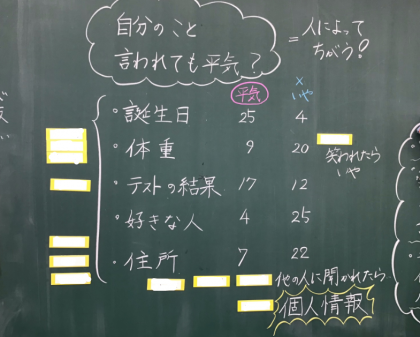 自分のこと
言われても平気?
=人によって
ちがう!
平気 × いや
・誕生日 25 4
・体重 9 20
笑われたら
いや
・テストの結果 17 12
・好きな人 4 25
・住所 7 22
他の人に聞かれたら
個人情報